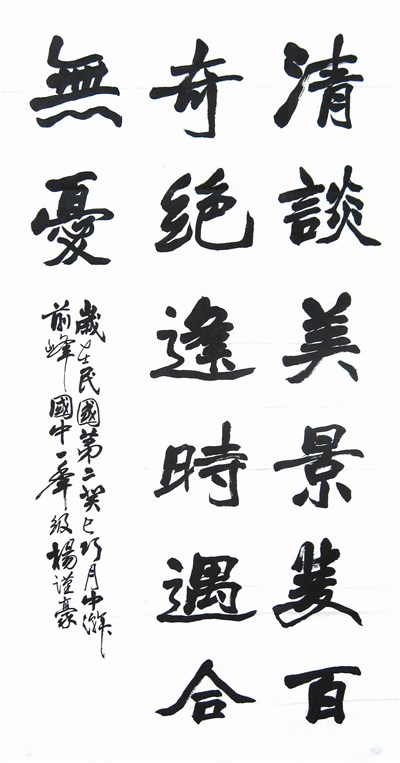 清談美景百
奇絶逢時遇合
無憂
歲在民國第二癸巳巧月中澣
前峰國中一年級楊謹豪